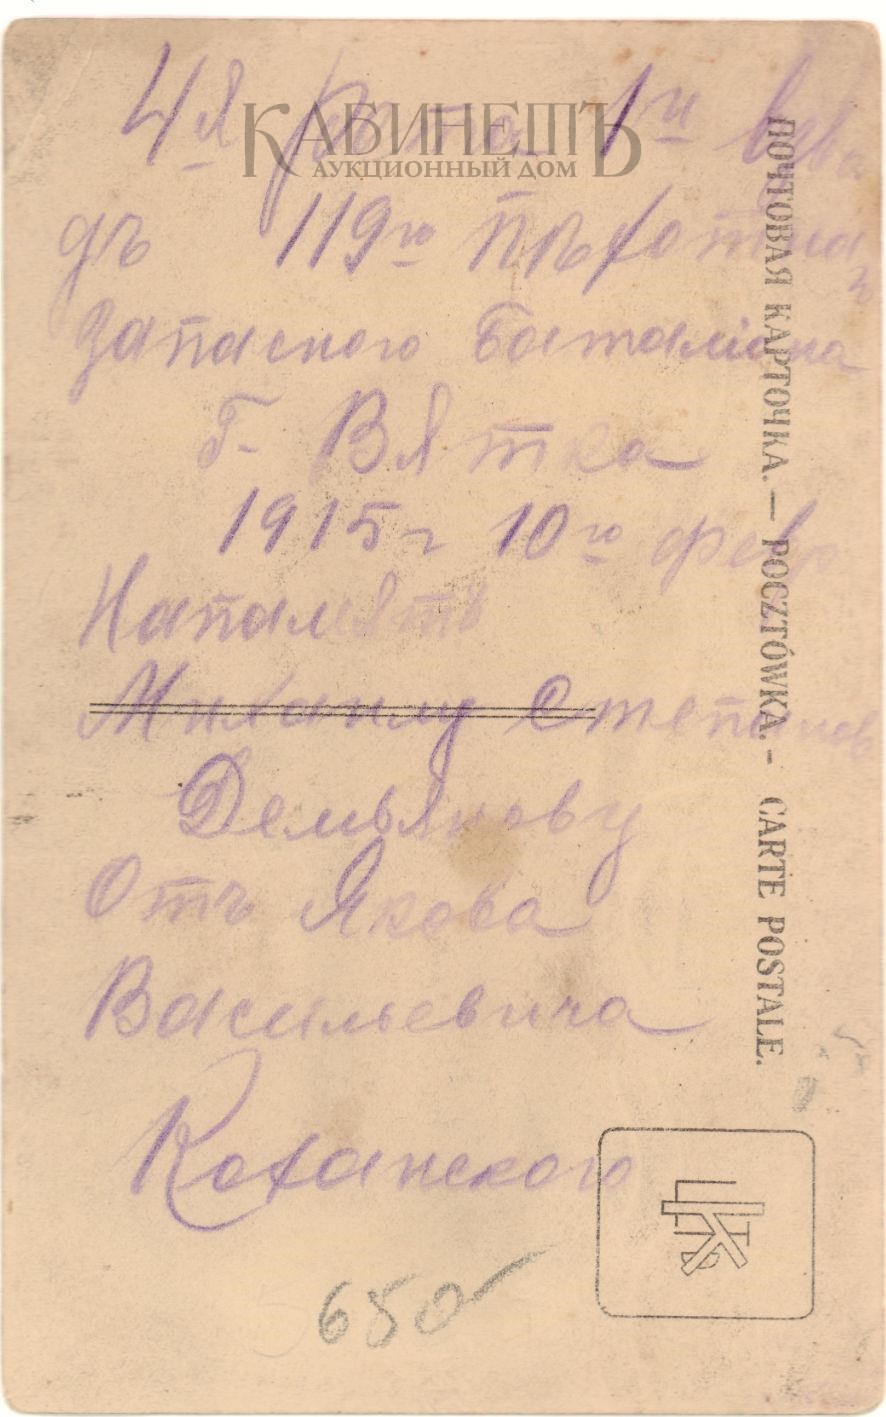 4я рота 1й взво
дъ 119го Пѣхотна
го
Запасного Баталіона
Г. Вятка
1915 г 10го февр
На память
Михаилу Степанов
Демьянову
Отъ Якова
Васильевича
Коханского
650
КАБИНЕТЪ
АУКЦИОННЫЙ ДОМ
ПОЧТОВАЯ КАРТОЧКА. — POCZTÓWKA. - CARTE POSTALE.